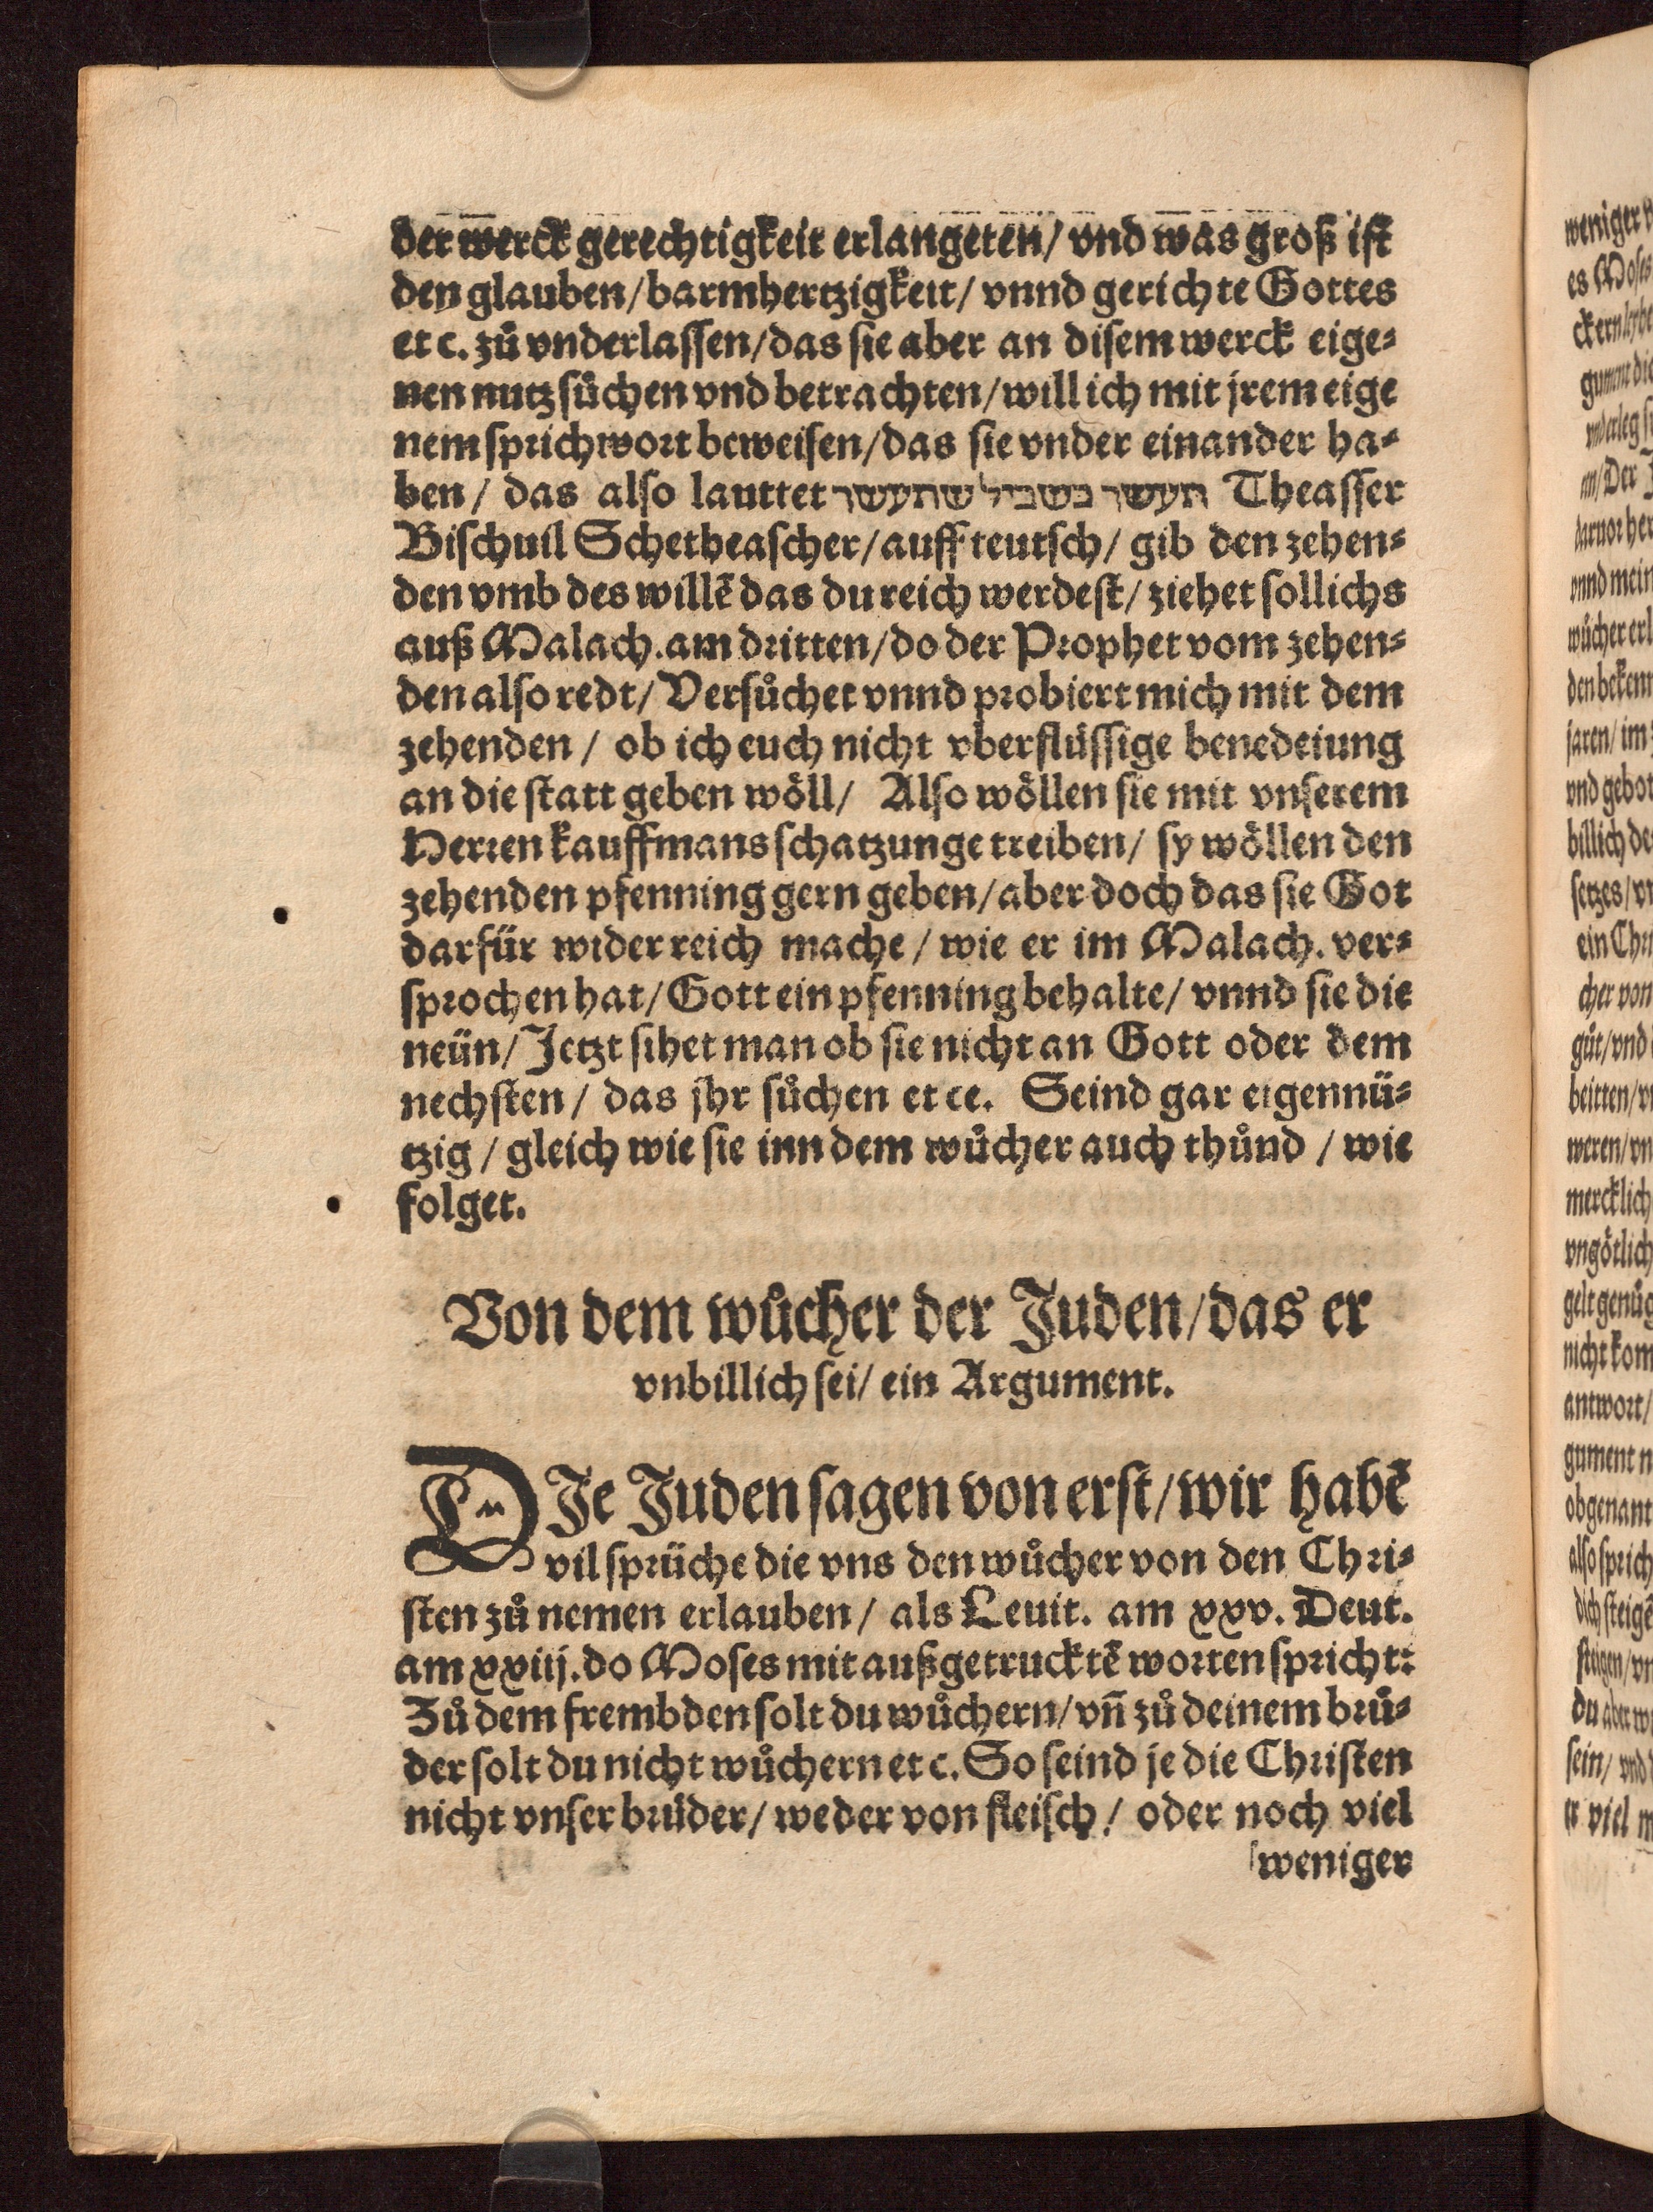 der werck gerechtigkeit erlangeten/ vnd was groß ist
den glauben/ barmhertzigkeit/ vnnd gerichte Gottes
et c. zů vnderlassen/ das sie aber an disem werck eige⸗
nen nutz sůchen vnd betrachten/ will ich mit jrem eige
nem sprichwort beweisen/ das sie vnder einander ha⸗
ben/ das also lauttet תעשר בשביל שתעשר Theasser
Bischuil Schetheascher/ auff teutsch/ gib den zehen⸗
den vmb des willē das du reich werdest/ ziehet sollichs
auß Malach. am dritten/ do der Prophet vom zehen⸗
den also redt/ Versůchet vnnd probiert mich mit dem
zehenden/ ob ich euch nicht vberflüssige benedeiung
an die statt geben wöll/ Also wöllen sie mit vnserem
Herren kauffmans schatzunge treiben/ sy wöllen den
zehenden pfenning gern geben/ aber doch das sie Got
darfür wider reich mache/ wie er im Malach. ver⸗
sprochen hat/ Gott ein pfenning behalte/ vnnd sie die
neün/ Jetzt sihet man ob sie nicht an Gott oder dem
nechsten/ das jhr sůchen et ce. Seind gar eigennü⸗
tzig/ gleich wie sie inn dem wůcher auch thůnd/ wie
folget.
Von dem wůcher der Juden/ das er
vnbillich sei/ ein Argument.
DIe Juden sagen von erst/ wir habē
vil sprüche die vns den wůcher von den Chri⸗
sten zů nemen erlauben/ als Leuit. am xxv. Deut.
am xxiij. do Moses mit außgetrucktē worten spricht:
Zů dem frembden solt du wůchern/ vn̄ zů deinem brů⸗
der solt du nicht wůchern et c. So seind je die Christen
nicht vnser brüder/ weder von fleisch/ oder noch viel
weniger